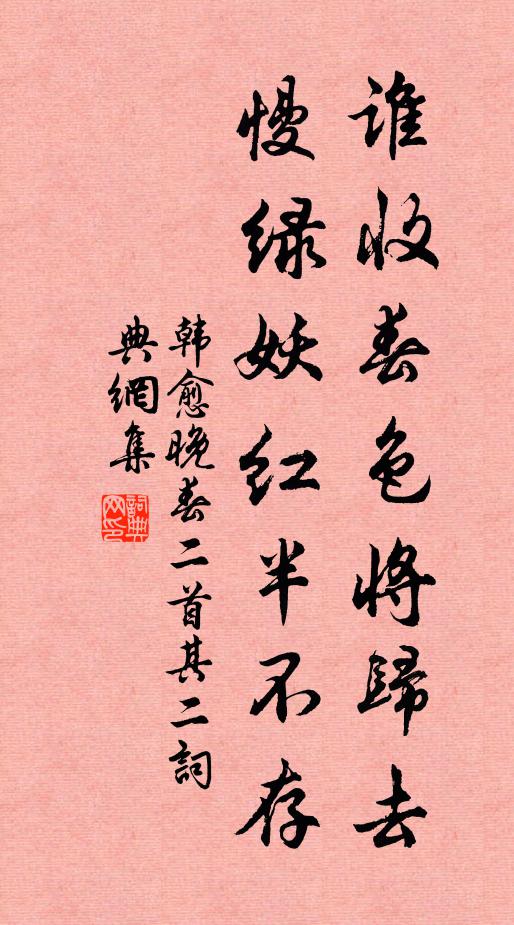 谁收春色将歸去
慢绿妖红半不存
韩愈晚春二首其二詞
典網集
詞典网印